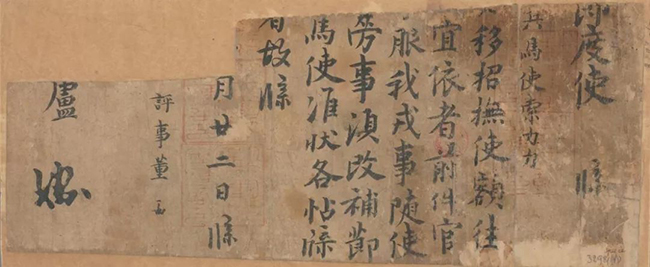 度使 牒
兵馬使索力力
移招撫使額往
宜依者前件官
服我戎事隨使
勞事須改補節
馬使准狀各帖牒
者故牒
月廿二日牒
評事董
盧